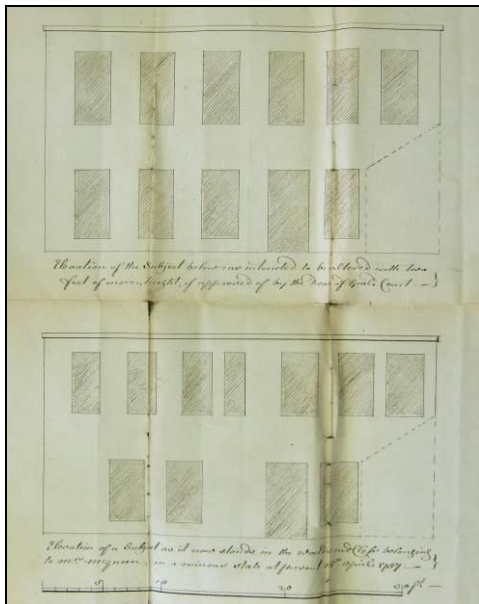 Elevation of the Subject below as intended to be altered with two
feet of more height, if approved of by the Dean of Guild Court.
Elevation of a Subject as it now stands in the Close belonging
to Mrs in a ruinous state at present April 1787
5 10 20 30 ft